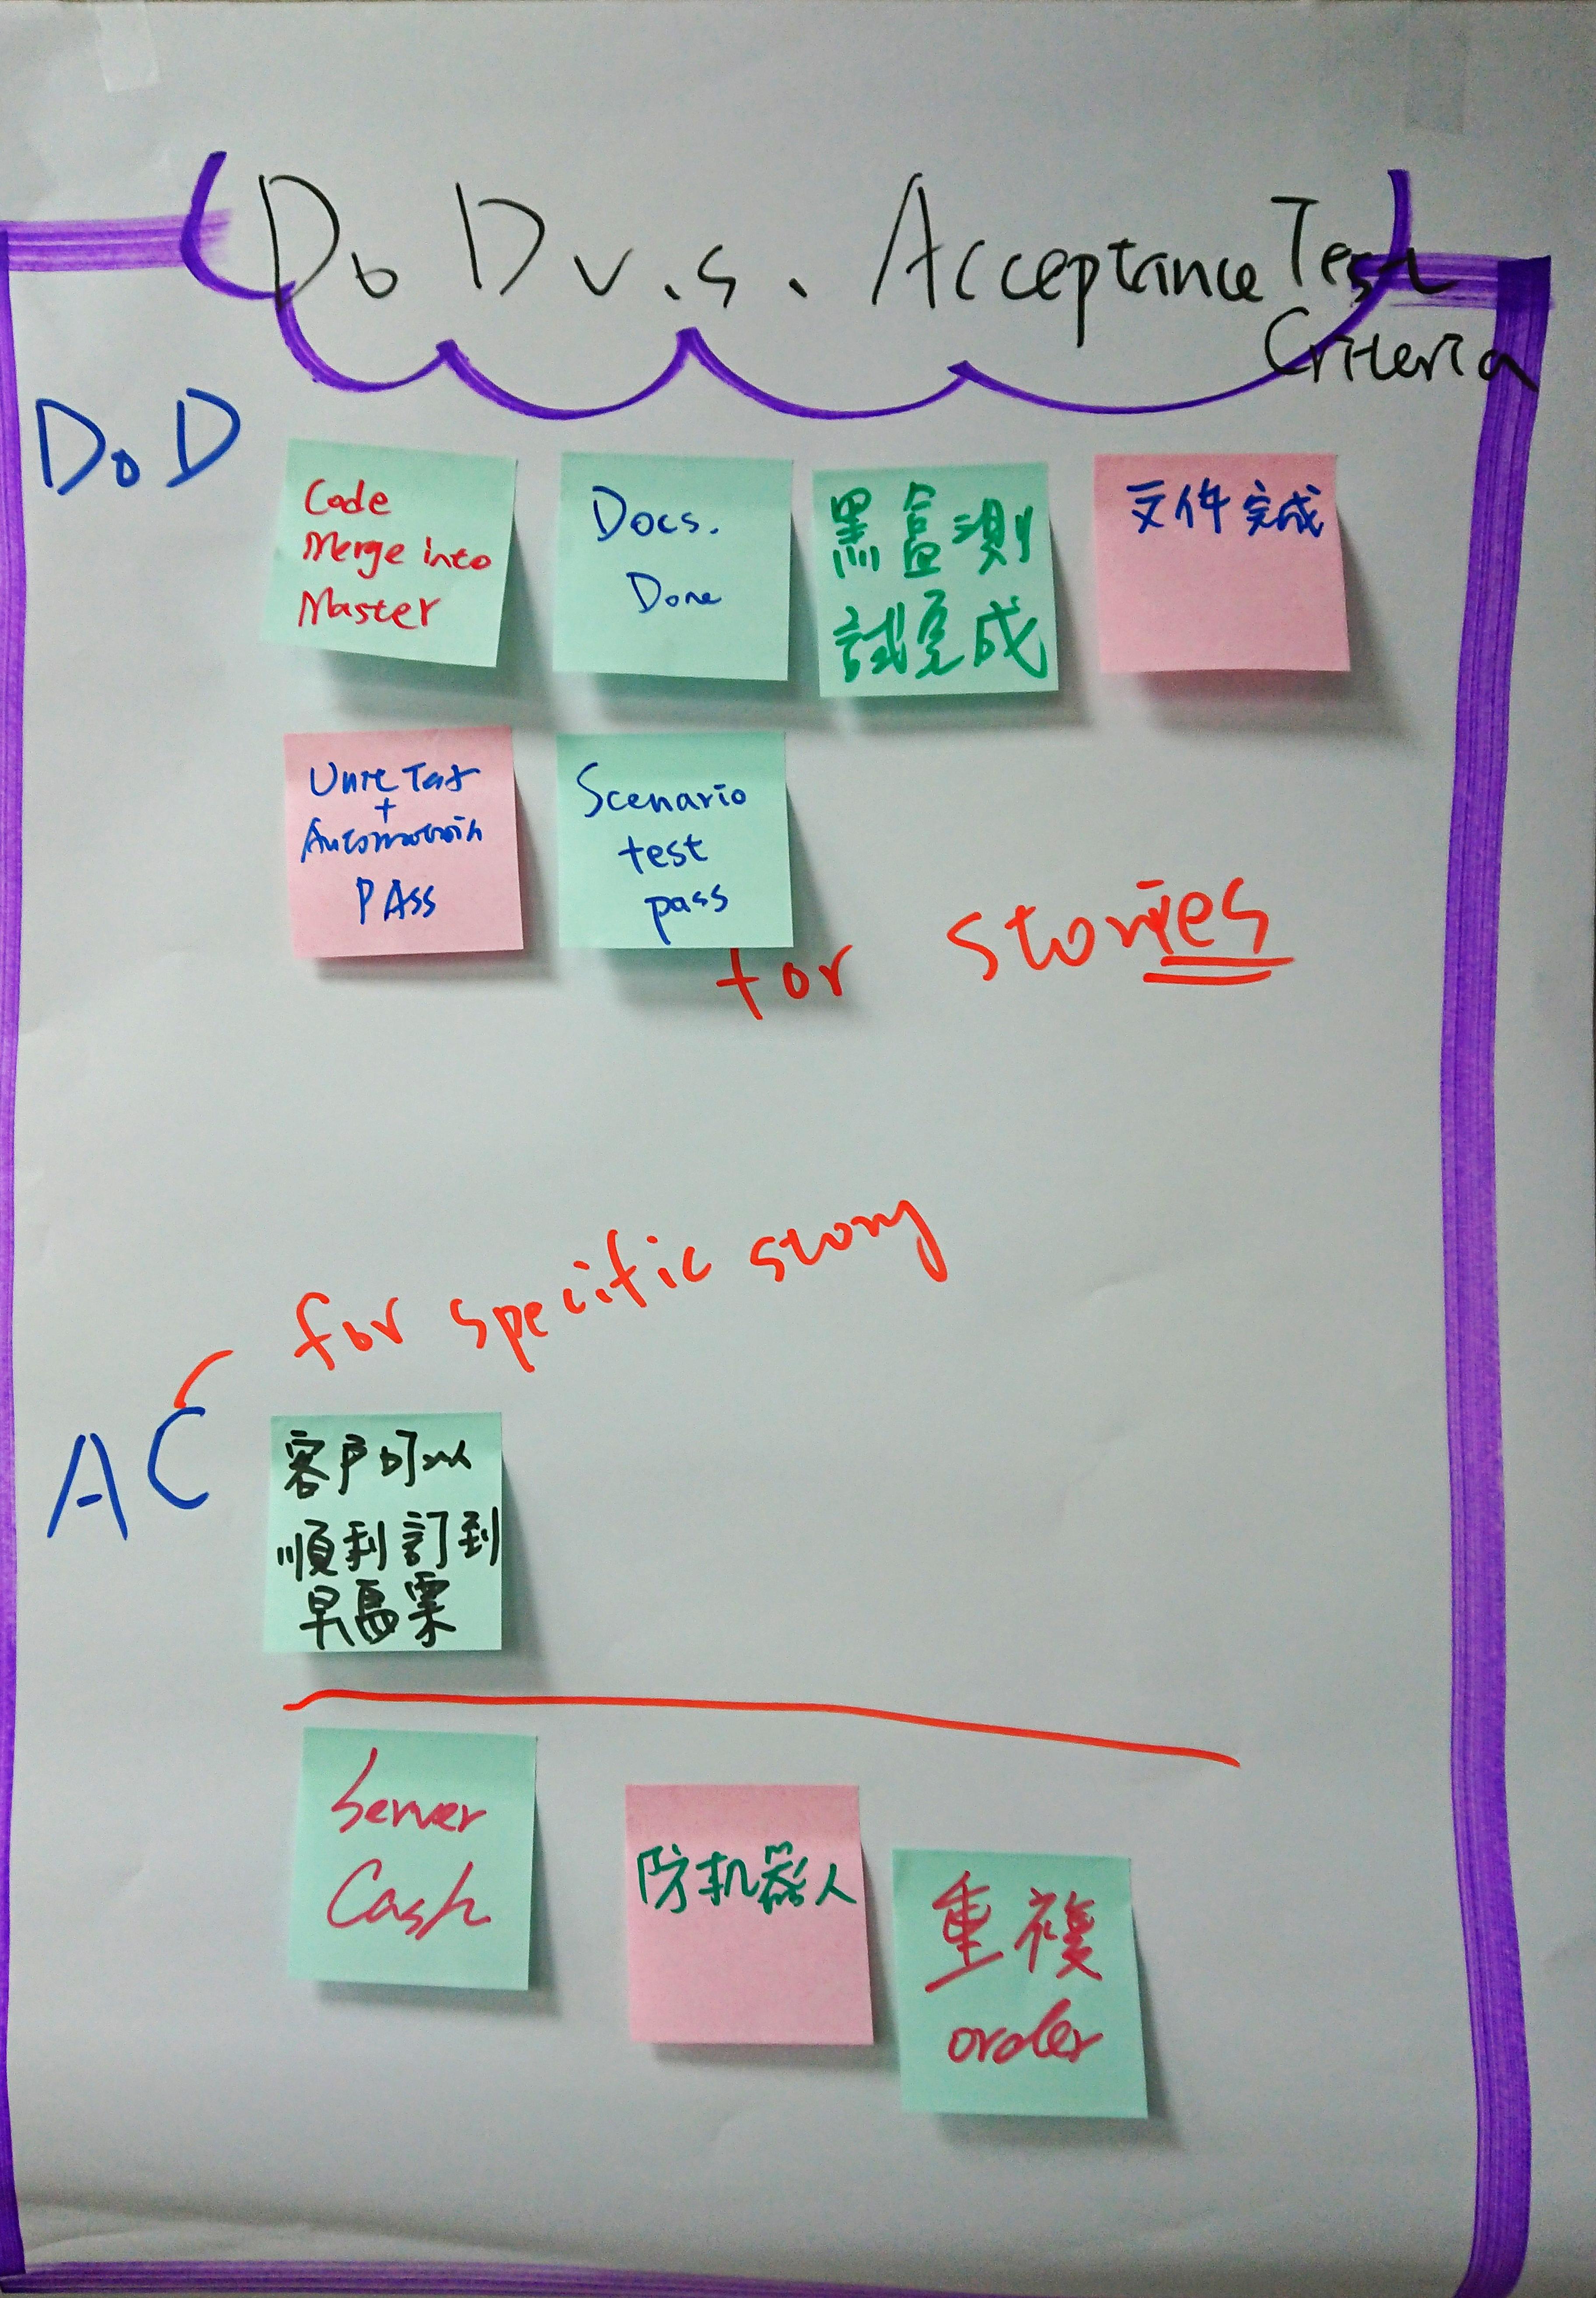 DoD v.s. Acceptance Test
Criteria
DoD
Code
Merge into
Master
Docs.
Done
黑盒測
試完成
文件完成
Unit Test
+
Automation
PAss
Scenario
test
pass
for stories
for specific story
AC
客戶可以
順利訂到
早鳥票
Server
Cash
防机器人
重複
order